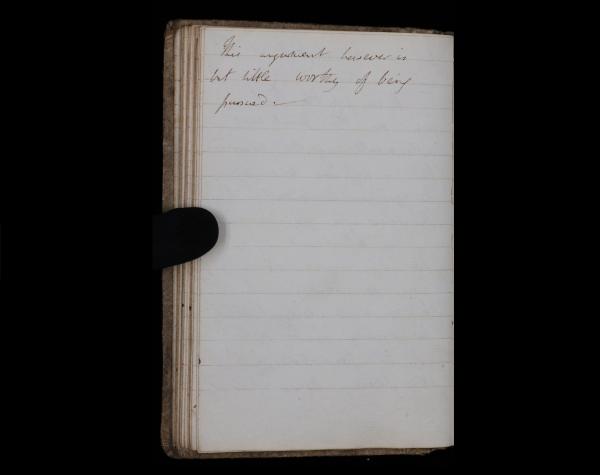 This argument however is
but little worthy of being
pursued. –